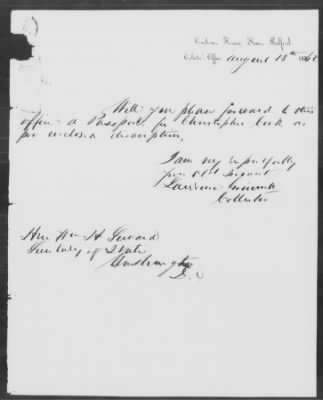 Custom House, New Bedford,
Collector's Office, August 15th 186
Will you please forward to this
office a Passport for Christopher Cook as
per enclosed description,
I am very respectfully
your Obt Servant
Lawrence Grinnell
Collector
Hon Wm H Seward
Secretary of State
Washington
D.C